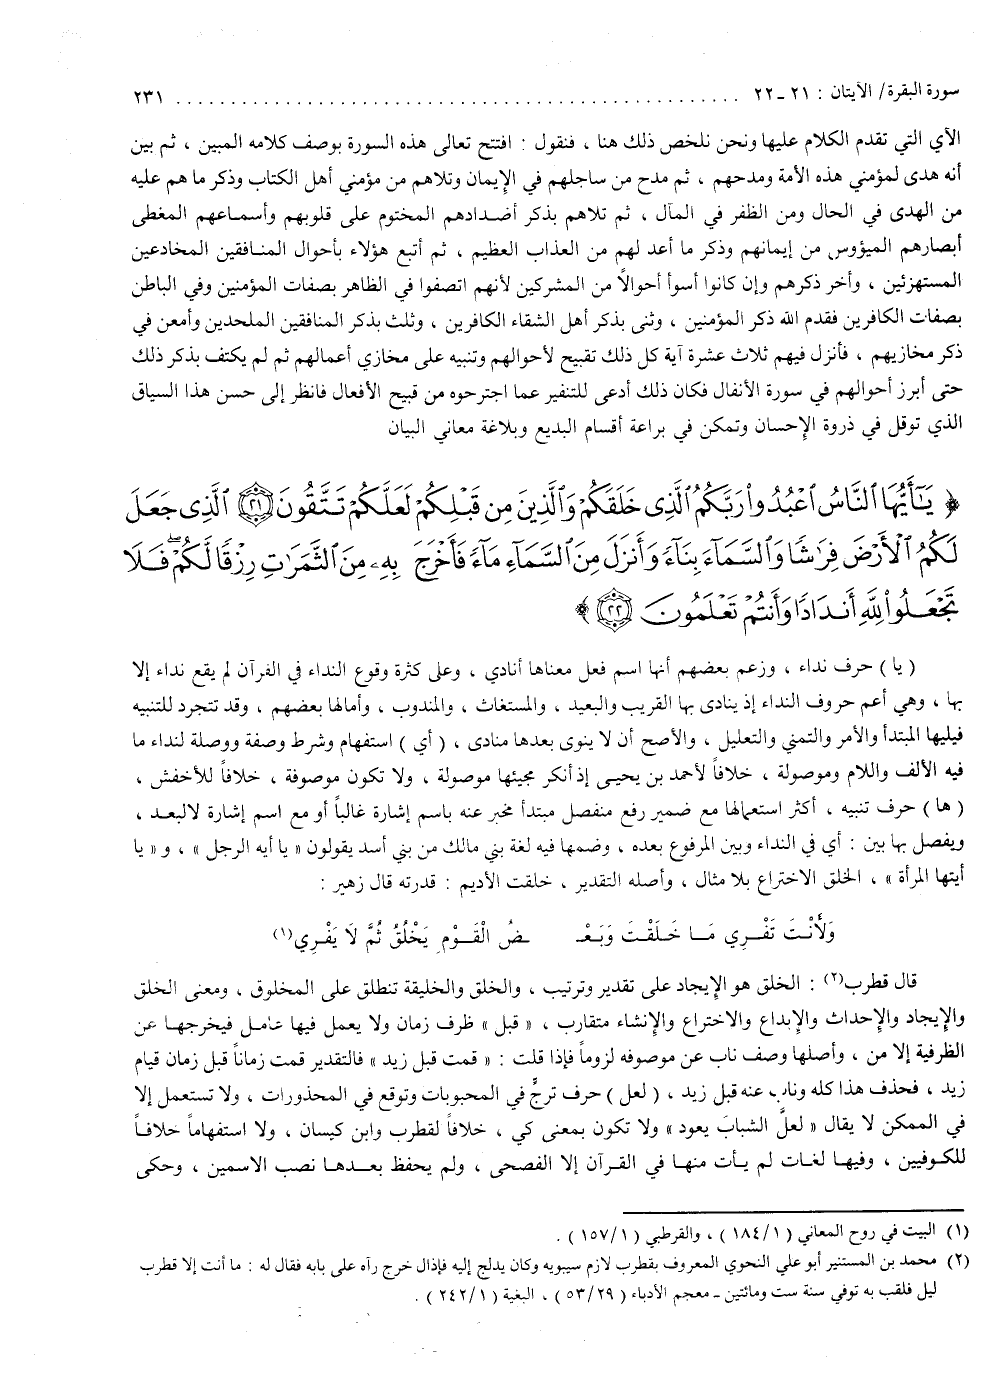 سورة البقرة/ الآيتان : ٢١ ـ ٢٢ . . . . . . . . . . . . . . . . . . . . . . . . . . . . . . . . . . . . . . . . . . . . . . . . . ٢٣١
الآي التي تقدم الكلام عليها ونحن نلخص ذلك هنا ، فنقول : افتتح تعالى هذه السورة بوصف كلامه المبين ، ثم بين
أنه هدى لمؤمني هذه الأمة ومدحهم ، ثم مدح من ساجلهم في الإيمان وتلاهم من مؤمني أهل الكتاب وذكر ما هم عليه
من الهدى في الحال ومن الظفر في المآل ، ثم تلاهم بذكر أضدادهم المختوم على قلوبهم وأسماعهم المغطى
أبصارهم الميؤوس من إيمانهم وذكر ما أعد لهم من العذاب العظيم ، ثم أتبع هؤلاء بأحوال المنافقين المخادعين
المستهزئين ، وأخر ذكرهم وإن كانوا أسوأ أحوالاً من المشركين لأنهم اتصفوا في الظاهر بصفات المؤمنين وفي الباطن
بصفات الكافرين فقدم الله ذكر المؤمنين ، وثنى بذكر أهل الشقاء الكافرين ، وثلث بذكر المنافقين الملحدين وأمعن في
ذكر مخازيهم ، فأنزل فيهم ثلاث عشرة آية كل ذلك تقبيح لأحوالهم وتنبيه على مخازي أعمالهم ثم لم يكتف بذكر ذلك
حتى أبرز أحوالهم في سورة الأنفال فكان ذلك أدعى للتنفير عما اجترحوه من قبيح الأفعال فانظر إلى حسن هذا السياق
الذي توقل في ذروة الإحسان وتمكن في براعة أقسام البديع وبلاغة معاني البيان
﴿ يَـٰٓأَيُّهَا ٱلنَّاسُ ٱعْبُدُوا۟ رَبَّكُمُ ٱلَّذِى خَلَقَكُمْ وَٱلَّذِينَ مِن قَبْلِكُمْ لَعَلَّكُمْ تَتَّقُونَ ۝٢١ ٱلَّذِى جَعَلَ
لَكُمُ ٱلْأَرْضَ فِرَٰشًا وَٱلسَّمَآءَ بِنَآءً وَأَنزَلَ مِنَ ٱلسَّمَآءِ مَآءً فَأَخْرَجَ بِهِۦ مِنَ ٱلثَّمَرَٰتِ رِزْقًا لَّكُمْ ۖ فَلَا
تَجْعَلُوا۟ لِلَّهِ أَندَادًا وَأَنتُمْ تَعْلَمُونَ ۝٢٢ ﴾
( يا ) حرف نداء ، وزعم بعضهم أنها اسم فعل معناها أنادي ، وعلى كثرة وقوع النداء في القرآن لم يقع نداء إلا
بها ، وهي أعم حروف النداء إذ ينادى بها القريب والبعيد ، والمستغاث ، والمندوب ، وأمالها بعضهم ، وقد تتجرد للتنبيه
فيليها المبتدأ والأمر والتمني والتعليل ، والأصح أن لا ينوى بعدها منادى ، ( أي ) استفهام وشرط وصفة ووصلة لنداء ما
فيه الألف واللام وموصولة ، خلافاً لأحمد بن يحيى إذ أنكر مجيئها موصولة ، ولا تكون موصوفة ، خلافاً للأخفش ،
( ها ) حرف تنبيه ، أكثر استعمالها مع ضمير رفع منفصل مبتدأ مخبر عنه باسم إشارة غالباً أو مع اسم إشارة لالبعد ،
ويفصل بها بين : أي في النداء وبين المرفوع بعده ، وضمها فيه لغة بني مالك من بني أسد يقولون « يا أيه الرجل » ، و « يا
أيتها المرأة » ، الخلق الاختراع بلا مثال ، وأصله التقدير ، خلقت الأديم : قدرته قال زهير :
وَلَأَنْتَ تَفْرِي مَا خَلَقْتَ وَبَعْـ ـضُ الْقَوْمِ يَخْلُقُ ثُمَّ لَا يَفْرِي(١)
قال قطرب(٢) : الخلق هو الإيجاد على تقدير وترتيب ، والخلق والخليقة تنطلق على المخلوق ، ومعنى الخلق
والإيجاد والإحداث والإبداع والاختراع والإنشاء متقارب ، « قبل » ظرف زمان ولا يعمل فيها عامل فيخرجها عن
الظرفية إلا من ، وأصلها وصف ناب عن موصوفه لزوماً فإذا قلت : « قمت قبل زيد » فالتقدير قمت زماناً قبل زمان قيام
زيد ، فحذف هذا كله وناب عنه قبل زيد ، ( لعل ) حرف ترجٍّ في المحبوبات وتوقع في المحذورات ، ولا تستعمل إلا
في الممكن لا يقال « لعلَّ الشبابَ يعود » ولا تكون بمعنى كي ، خلافاً لقطرب وابن كيسان ، ولا استفهاماً خلافاً
للكوفيين ، وفيها لغات لم يأت منها في القرآن إلا الفصحى ، ولم يحفظ بعدها نصب الاسمين ، وحكى
(١) البيت في روح المعاني ( ١/ ١٨٤ ) ، والقرطبي ( ١/ ١٥٧ ) .
(٢) محمد بن المستنير أبو علي النحوي المعروف بقطرب لازم سيبويه وكان يدلج إليه فإذال خرج رآه على بابه فقال له : ما أنت إلا قطرب
ليل فلقب به توفي سنة ست ومائتين ـ معجم الأدباء ( ٢٩/ ٥٣ ) ، البغية ( ١/ ٢٤٢ ) .